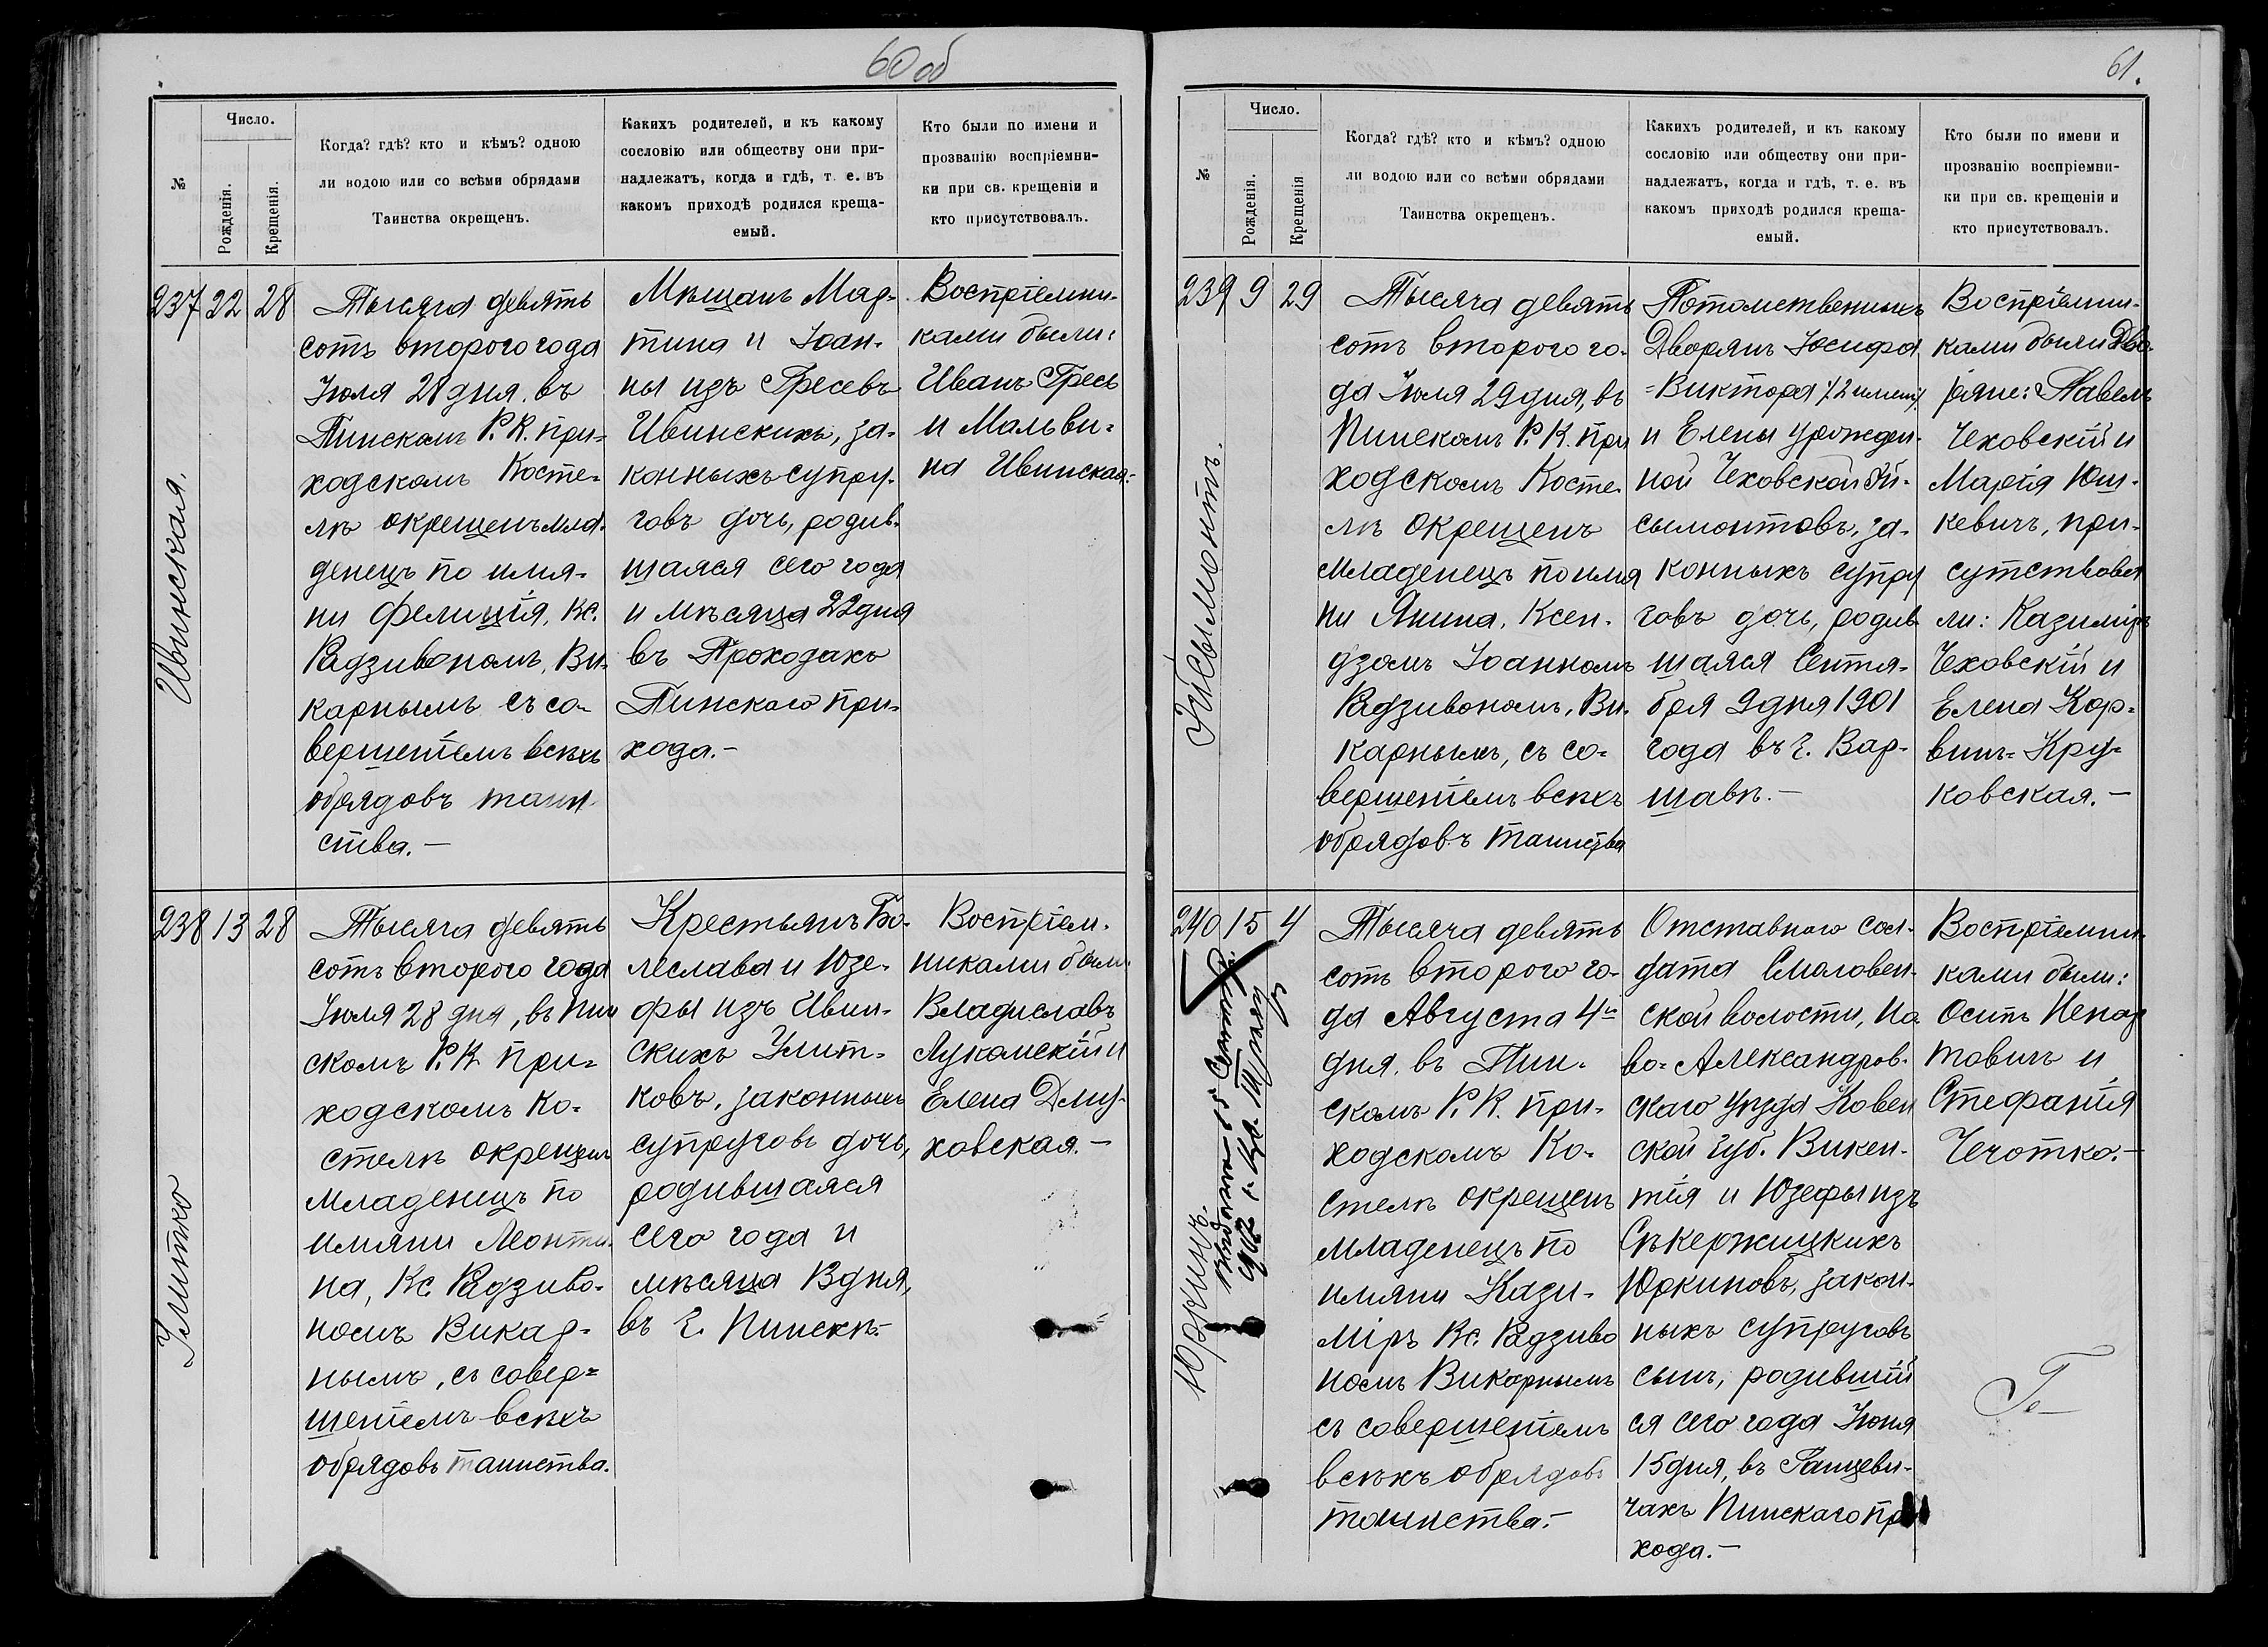 60 об
№
Число.
Рожденія.
Крещенія.
Когда? гдѣ? кто и кѣмъ? одною
ли водою или со всѣми обрядами
Таинства окрещенъ.
Какихъ родителей, и къ какому
сословію или обществу они при-
надлежатъ, когда и гдѣ, т. е. въ
какомъ приходѣ родился креща-
емый.
Кто были по имени и
прозванію воспріемни-
ки при св. крещеніи и
кто присутствовалъ.
237 22 28
Ивинская.
Тысяча девять
сотъ второго года
Іюля 28 дня, въ
Пинскомъ Р. К. при-
ходскомъ Косте-
лѣ окрещенъ мла-
денецъ по имя-
ни Фелиція, Кс.
Радзивономъ, Ви-
карнымъ съ со-
вершеніемъ всѣхъ
обрядовъ таин-
ства.—
Мѣщанъ Мар-
тина и Іоан-
ны изъ Гресевъ
Ивинскихъ, за-
конныхъ супру-
говъ дочь, родив-
шаяся сего года
и мѣсяца 22 дня
въ Проходахъ
Пинскаго при-
хода.—
Воспріемни-
ками были:
Иванъ Гресь
и Мальви-
на Ивинская.
238 13 28
Улитко
Тысяча девять
сотъ второго года
Іюля 28 дня, въ Пин
скомъ Р. К. при-
ходскомъ Ко-
стелѣ окрещенъ
младенецъ по
имяни Леонти-
на, Кс. Радзиво-
номъ Викар-
нымъ, съ совер-
шеніемъ всѣхъ
обрядовъ таинства.
Крестьянъ Бо-
леслава и Юзе-
фы изъ Ивин-
скихъ Улит-
ковъ, законныхъ
супруговъ дочь,
родившаяся
сего года и
мѣсяца 13 дня,
въ г. Пинскѣ.—
Воспріем-
никами были
Владиславъ
Лукомскій и
Елена Длу-
ховская.—
61.
№
Число.
Рожденія.
Крещенія
Когда? гдѣ? кто и кѣмъ? одною
ли водою или со всѣми обрядами
Таинства окрещенъ.
Какихъ родителей, и къ какому
сословію или обществу они при-
надлежатъ, когда и гдѣ, т. е. въ
какомъ приходѣ родился креща-
емый.
Кто были по имени и
прозванію воспріемни-
ки при св. крещеніи и
кто присутствовалъ.
239 9 29
Тысяча девять
сотъ второго го-
да Іюля 29 дня, въ
Пинскомъ Р. К. при
ходскомъ Косте-
лѣ окрещенъ
младенецъ по имя
ни Янина, Ксен-
дзомъ Іоанномъ
Радзивономъ, Ви-
карнымъ, съ со-
вершеніемъ всѣхъ
обрядовъ таинства
Потомственныхъ
Дворянъ Іосифа
=Виктора /2 имени/
и Елены урожден-
ной Чеховской
сымонтовъ, за-
конныхъ супру
говъ дочь, родив
шаяся Сентя-
бря 9 дня 1901
года въ г. Вар-
шавѣ.—
Воспріемни-
ками были Дво-
ряне: Павелъ
Чеховскій и
Марія Юш-
кевичъ, при-
сутствова
ли: Казиміръ
Чеховскій и
Елена Кор-
винъ-Кру-
ковская.—
240 15 4
Юркинъ.
Тысяча девять
сотъ второго го-
да Августа 4й
дня, въ Пин-
скомъ Р. К. при-
ходскомъ Ко-
стелѣ окрещенъ
младенецъ по
имяни Кази-
міръ Кс. Радзиво
номъ Викарнымъ
съ совершеніемъ
всѣхъ обрядовъ
таинства.—
Отставного сол-
дата
ской волости, Но
во-Александров-
скаго уѣзда Ковен
ской губ. Викен-
тія и Юзефы изъ
Скержицкихъ
Юркиновъ, закон-
ныхъ супруговъ
сынъ, родившій
ся сего года Іюня
15 дня, въ Ганцеви-
чахъ Пинскаго при
хода.—
Воспріемни-
ками были:
Осипъ
товичъ и
Стефанія
Чечотко.—